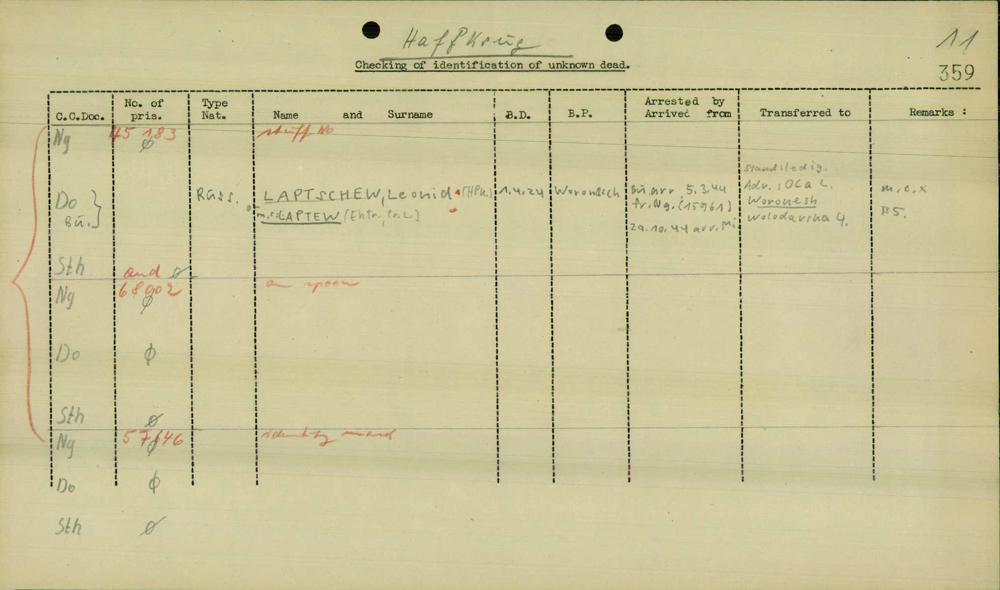 HaffKrug
11
Checking of identification of unknown dead.
359
C.C.Doc. No. of pris. Type Nat. Name and Surname B.D. B.P. Arrested by Arrived from Transferred to Remarks :
Ng 45 183 ∅ stuff No
Do Bü. } Russ. LAPTSCHEW, Leonid (HPk.) 1.4.24 Woronesch Bü arr. 5.3.44
LAPTEW
tr. Ng. (15961)
29.10.44 arr.
stand: ledig.
Adr.:
Woronesh
4.
Sth and ∅
Ng 68902 ∅ on spoon
Do ∅
Sth ∅
Ng 57646 identity mark
Do ∅
Sth ∅